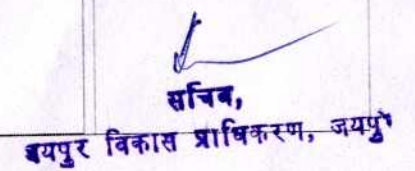 सचिव,
जयपुर विकास प्राधिकरण, जयपुर